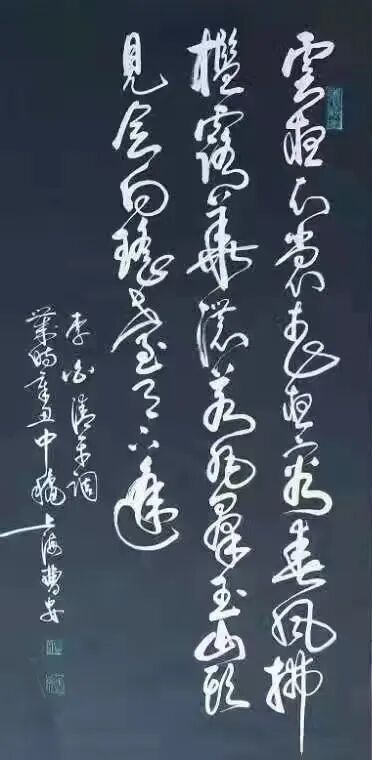 雲想衣裳花想容春風拂
檻露華濃若非羣玉山頭
見會向瑤臺月下逢
李白清平調
歲時辛丑中穐上海曹安